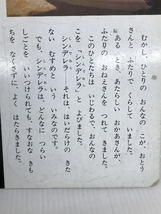 むかし、ひとりの おんなの こが、おとう
さんと ふたりで くらして いました。
ある とき、あたらしい おかあさんが、
ふたりの おねえさんを つれて きました。
このひとたちは いじわるで、おんなの
こを、「シンデレラ」と よびました。
シンデレラ、それは、はいだらけの きた
ない むすめと いう いみなのです。
でも、シンデレラは、どんな
しごとを いいつけられても、すなおな きも
ちを なくさずに、よく はたらきました。